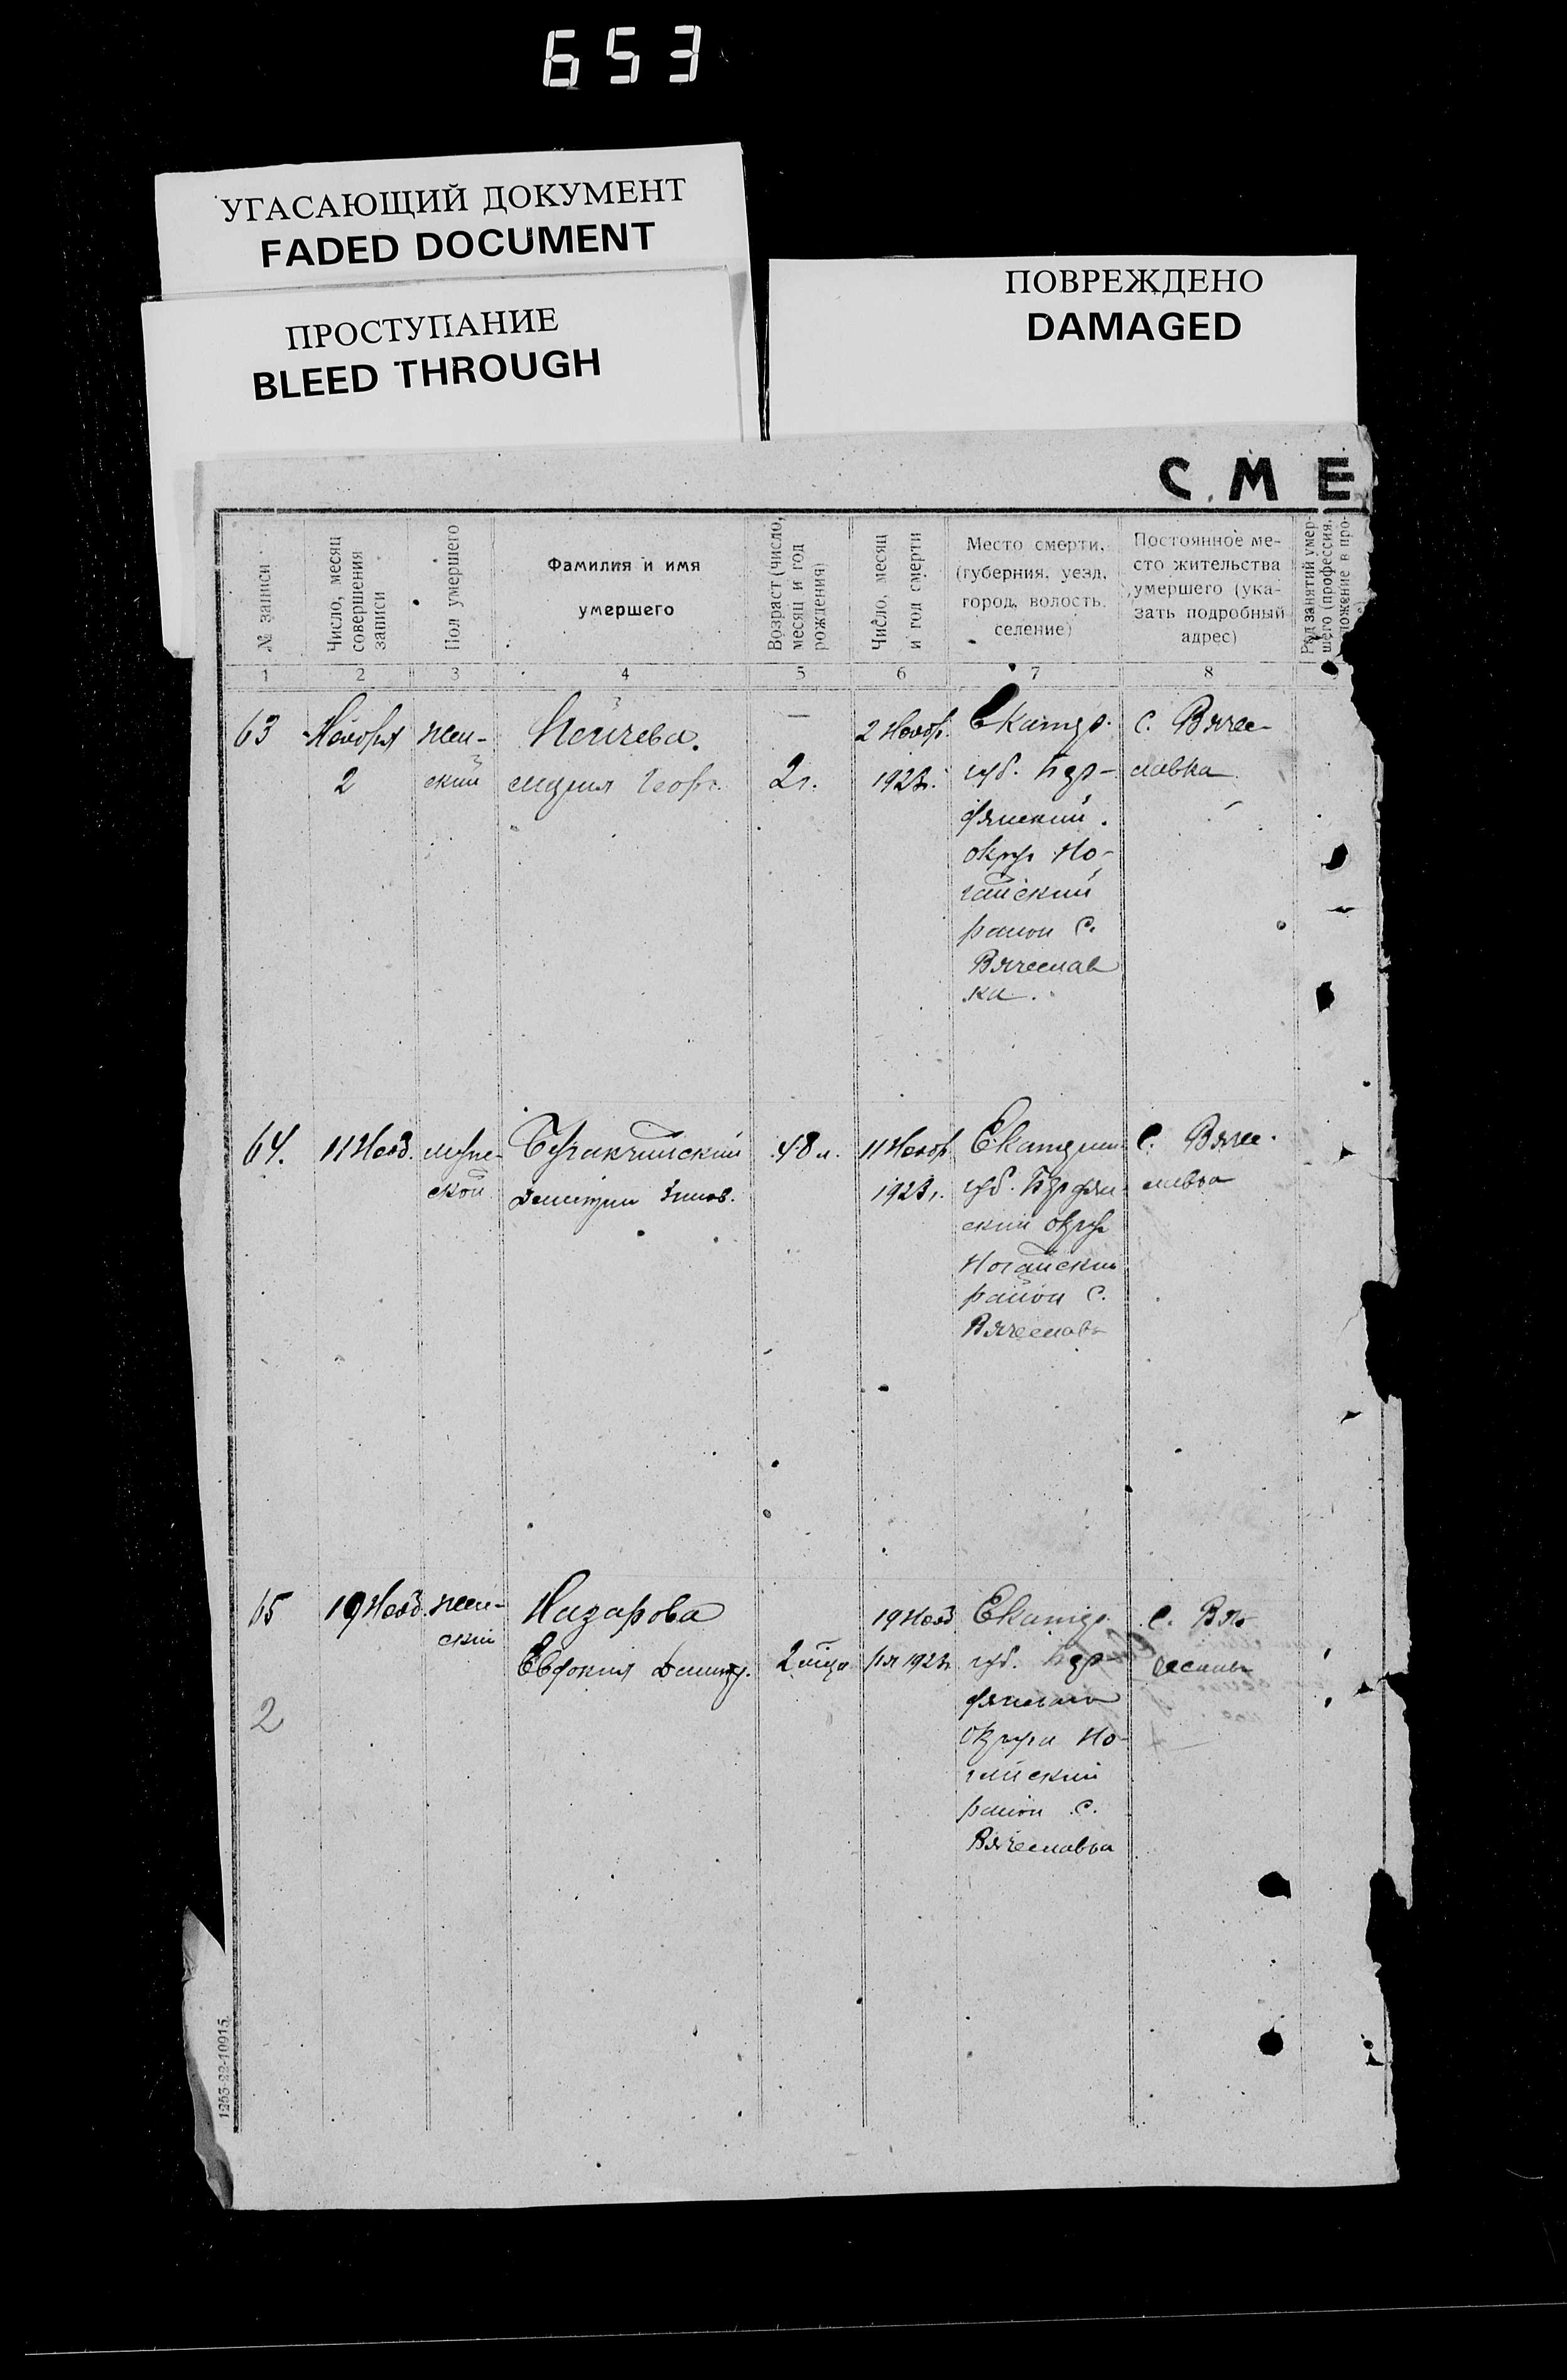 653
УГАСАЮЩИЙ ДОКУМЕНТ
FADED DOCUMENT
ПРОСТУПАНИЕ
BLEED THROUGH
ПОВРЕЖДЕНО
DAMAGED
СМЕ
№ записи
Число, месяц
совершения
записи
Пол умершего
Фамилия и имя
умершего
Возраст (число,
месяц и год
рождения)
Число, месяц
и год смерти
Место смерти,
(губерния, уезд,
город, волость,
селение)
Постоянное ме-
сто жительства
умершего (ука-
зать подробный
адрес)
Род занятий умер-
шего (профессия,
положение в про-
1 2 3 4 5 6 7 8
63
Ноября
2
жен-
ский
Георг.
—
2 г.
2 Нояб.
1923 г.
Екатер.
губ. Бер-
дянский
округ Но-
гайский
район с.
Вячеслав
ка.
с. Вяче-
славка
64.
11 Нояб.
муж-
ской
Дмитрий
48 л.
11 Нояб.
1923 г.
Екатерин
губ. Бердян
ский округ
Ногайский
район с.
Вячеславк
с. Вяче-
славка
65
2
19 Нояб.
жен-
ский
Назарова
Евдокия Дмитр.
2
19 Нояб
ря 1923 г.
Екатер.
губ. Бер-
дянского
округа Но-
гайский
район с.
Вячеславка
с. Вя-
1253-22-10915.